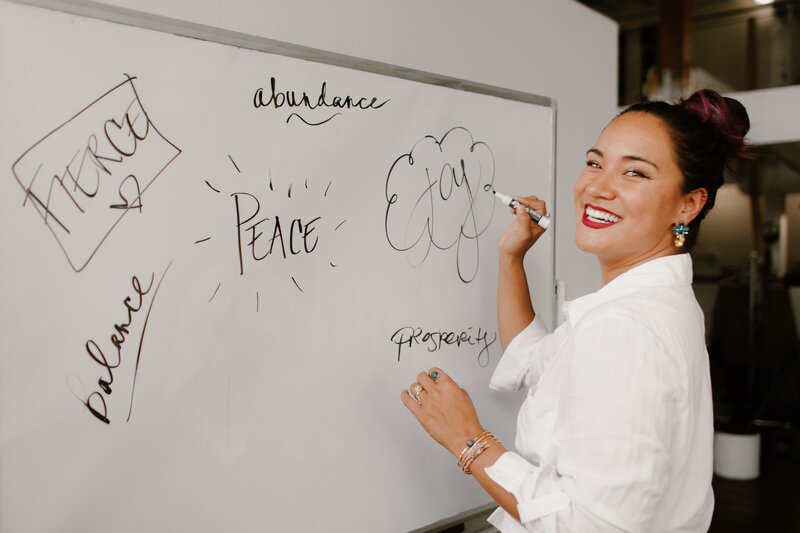 abundance
FIERCE
PEACE
Joy
balance
prosperity